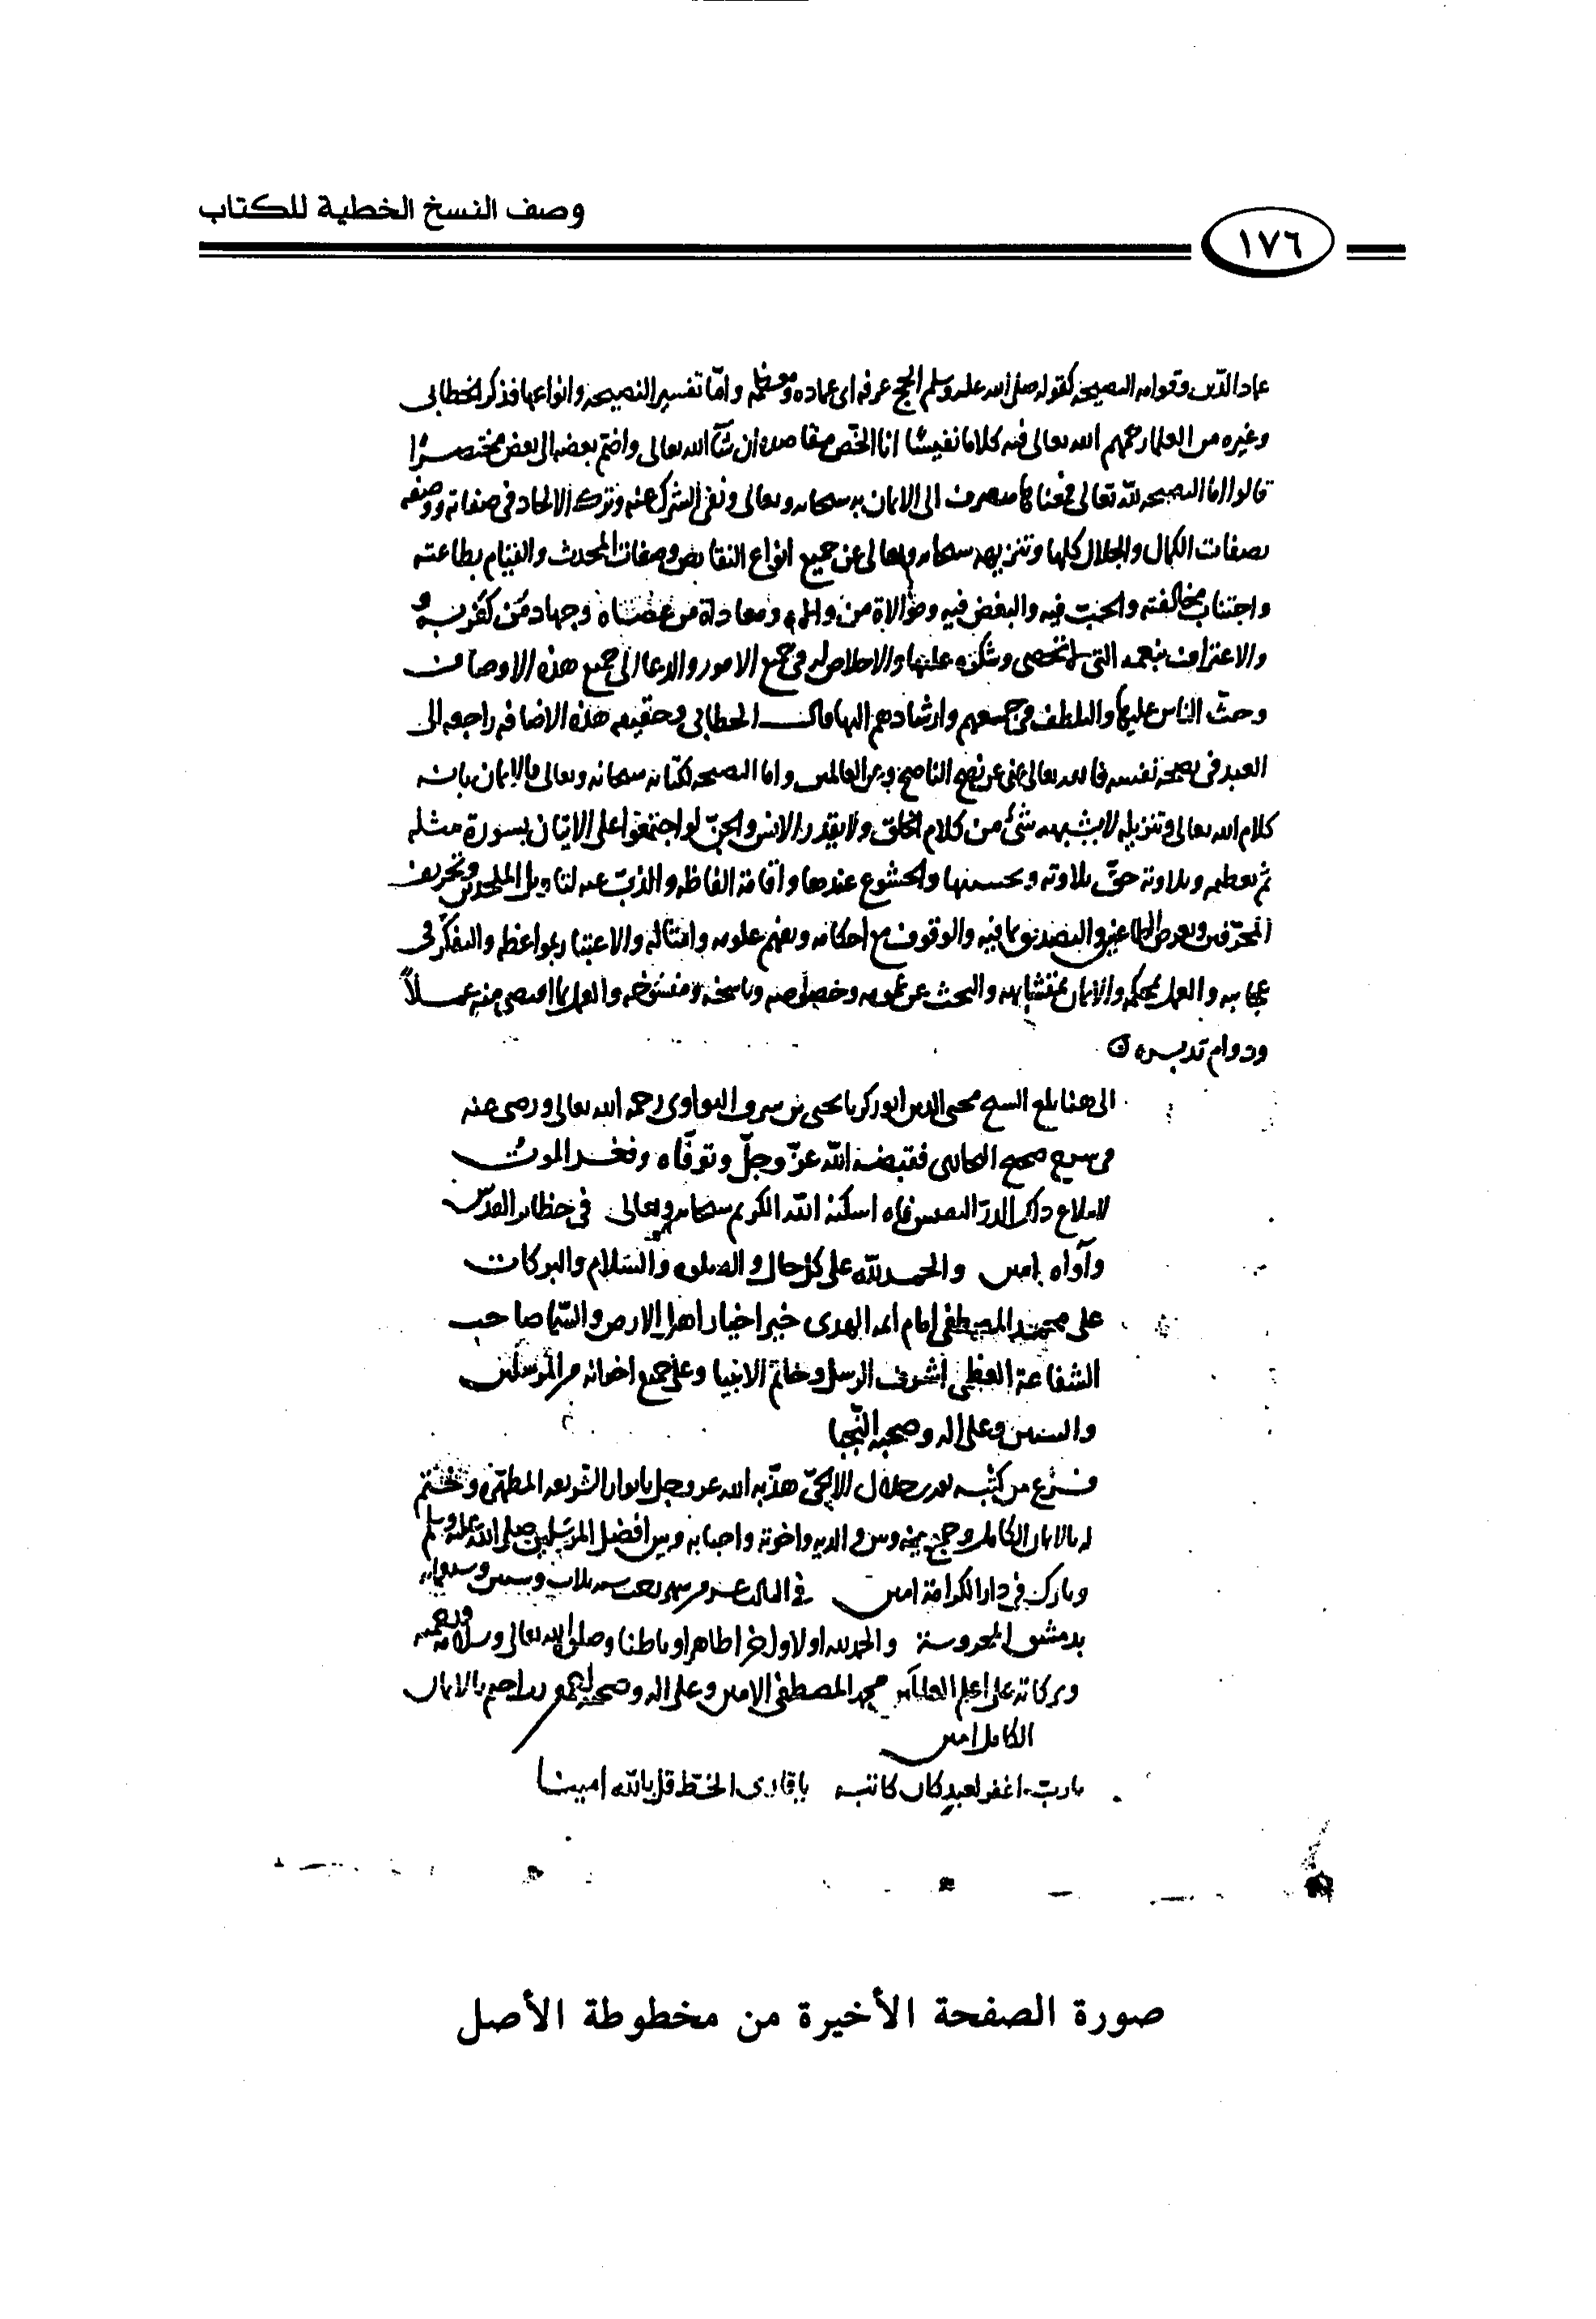 وصف النسخ الخطية للكتاب
١٧٦
عماد الدين وقوامه النصيحة كقوله صلى الله عليه وسلم الحج عرفة اى عماده ومعظمه واما تفسير النصيحة وانواعها فذكر الخطابى
وغيره من العلما رحمهم الله تعالى فيه كلاما نفيسا انا الخص مقاصده ان شآ الله تعالى واضم بعضه الى بعض مختصرا
قالوا اما النصيحة لله تعالى فمعناها منصرف الى الايمان به سبحانه وتعالى ونفى الشرك عنه وترك الالحاد فى صفاته ووصفه
بصفات الكمال والجلال كلها وتنزيهه سبحانه وتعالى عن جميع انواع النقايص وصفات المحدث والقيام بطاعته
واجتناب مخالفته والحب فيه والبغض فيه وموالاة من والاه ومعاداة من عصاه وجهاد من كفر به و
والاعتراف بنعمه التى لا تحصى وشكره عليها والاخلاص له فى جميع الامور والدعا الى جميع هذه الاوصاف
وحث الناس عليها والتلطف فى جمعهم وارشادهم اليها قال الخطابى وحقيقة هذه الاضافة راجعة الى
العبد فى نصحه نفسه فالله تعالى غنى عن نصح الناصح وعن العالمين واما النصيحة لكتابه سبحانه وتعالى فالايمان بانه
كلام الله تعالى وتنزيله لا يشبهه شئ من كلام الخلق ولا يقدر الانس والجن لو اجتمعوا على الاتيان بسورة مثله
ثم تعظيمه وتلاوته حق تلاوته وتحسينها والخشوع عندها واقامة الفاظه والذب عنه لتاويل الملحدين وتحريف
المحرفين وتعرض الطاعنين والتصديق بما فيه والوقوف مع احكامه وتفهم علومه وامثاله والاعتبار بمواعظه والتفكر فى
عجايبه والعمل بمحكمه والايمان بمتشابهه والبحث عن عمومه وخصوصه وناسخه ومنسوخه والعمل بما اقتضى منه عملاً
ودوام تدبره
الى هنا بلغ الشيخ محيى الدين ابو زكريا يحيى بن شرف النواوى رحمه الله تعالى ورضى عنه
فى شرح صحيح البخارى فقبضه الله عز وجل وتوفاه وفغر الموت
لابتلاع ذاك الدر النفيس فاه اسكنه الله الكريم سبحانه وتعالى فى حظاير القدس
وآواه امين والحمد لله على كل حال والصلوه والسلام والبركات
على محمد المصطفى امام ايمة الهدى خير اخيار اهل الارض والسما صاحب
الشفاعة العظمى اشرف الرسل وخاتم الانبيا وعلى جميع اخوانه من المرسلين
والنبيين وعلى اله وصحبه النجبا
فرغ من كتبه جلال الايجى هذبه الله عز وجل بانوار الشريعة المطهرة وختم
له بالايمان الكامل وجمع بينه وبين والديه واخوته واحبابه وبين افضل المرسلين صلى الله عليه وسلم
وبارك فى دار الكرامة امين فى الثالث عشر من شهر رجب سنة ثلاث
بدمشق المحروسة والحمد لله اولا واخرا ظاهرا وباطنا وصلوات الله تعالى وسلامه
وبركاته على اعلم العالمين محمد المصطفى الامين وعلى اله وصحبه بالايمان
الكامل امين
يارب اغفر لعبد كان كاتبه يا قارى الخط قل بالله امينا
صورة الصفحة الأخيرة من مخطوطة الأصل